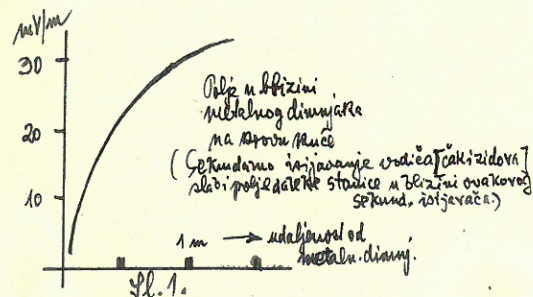 mV/m
30
20
10
Polje u blizini
metalnog dimnjaka
na krovu kuće
(Sekundarno isijavanje vodiča [čak i zidova]
slabi polje daleke stanice u blizini ovakovog
sekund. isijavača.)
1 m → udaljenost od
metaln. dimnj.
Sl. 1.